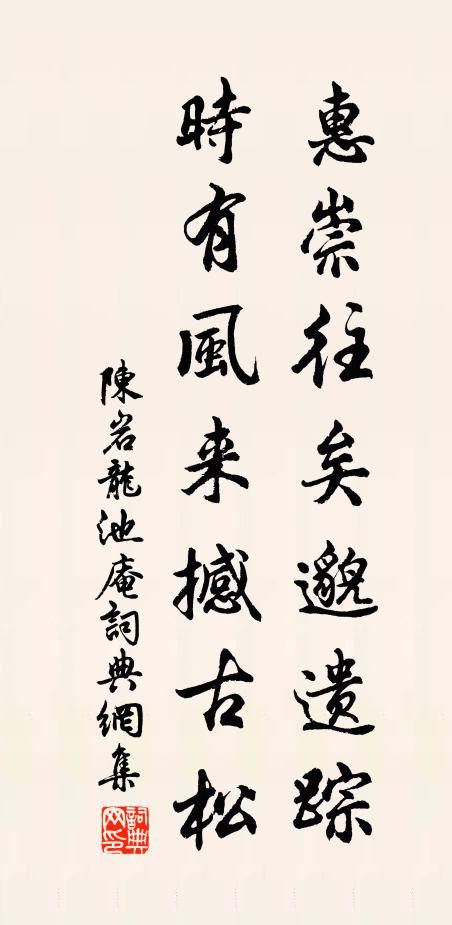 惠崇往矣邈遗踪
時有風来撼古松
陳岩龍池庵詞典網集
詞典网印